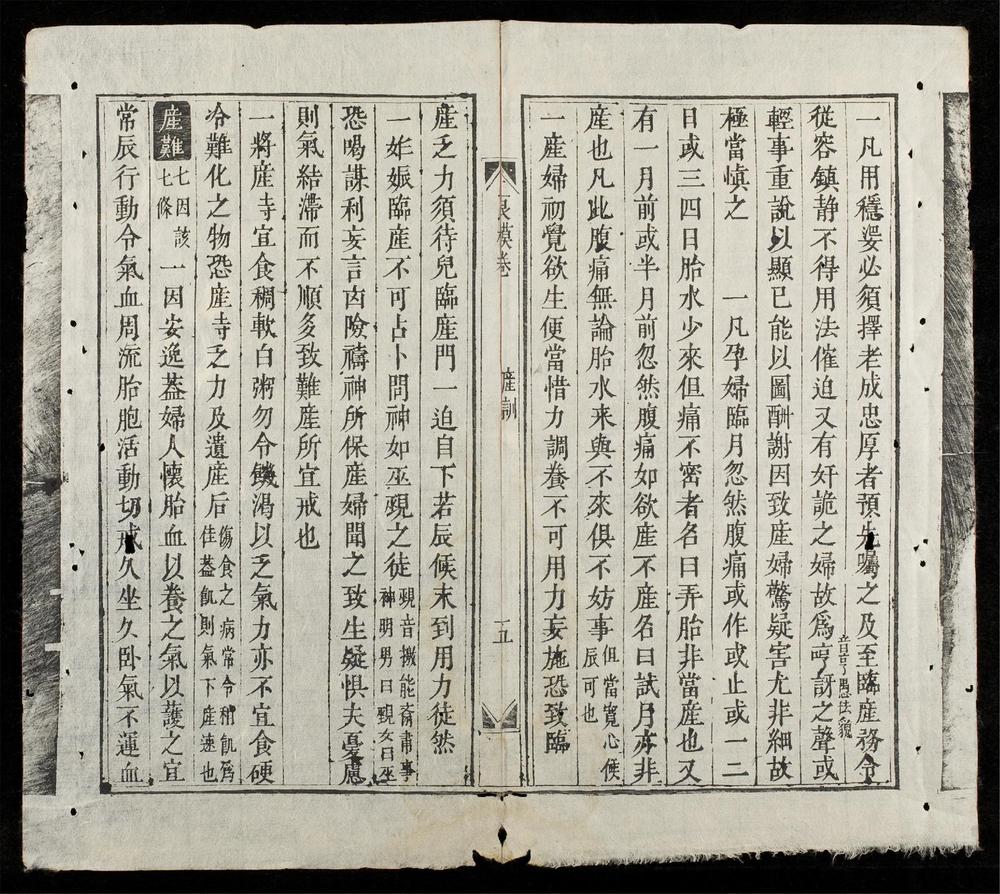 一凡用穩婆必須擇老成忠厚者預先囑之及至臨産務令
從容鎮静不得用法催迫又有奸詭之婦故爲哼訝之聲或
輕事重說以顯已能以圖酬謝因致産婦驚疑害尤非細故
極當慎之　一凡孕婦臨月忽然腹痛或作或止或一二
日或三四日胎水少來但痛不密者名曰弄胎非當産也又
有一月前或半月前忽然腹痛如欲産不産名曰試月亦非
産也凡此腹痛無論胎水来與不來俱不妨事但當寬心候
辰可也
一産婦初覺欲生便當惜力調養不可用力妄施恐致臨
良模卷
産訓
十五
産乏力須待兒臨産門一迫自下若辰候未到用力徒然
一妊娠臨産不可占卜問神如巫覡之徒覡音擬能齋肅事
神明男曰覡女曰巫
恐喝謀利妄言凶險禱神所保産婦聞之致生疑惧夫憂慮
則氣結滯而不順多致難産所宜戒也
一將産寺宜食稠軟白粥勿令饑渴以乏氣力亦不宜食硬
冷難化之物恐産寺乏力及遺産后傷食之病常令稍飢爲
佳蓋飢則氣下産速也
産難七因該
七條
一因安逸蓋婦人懷胎血以養之氣以護之宜
常辰行動令氣血周流胎胞活動切戒久坐久卧氣不運血